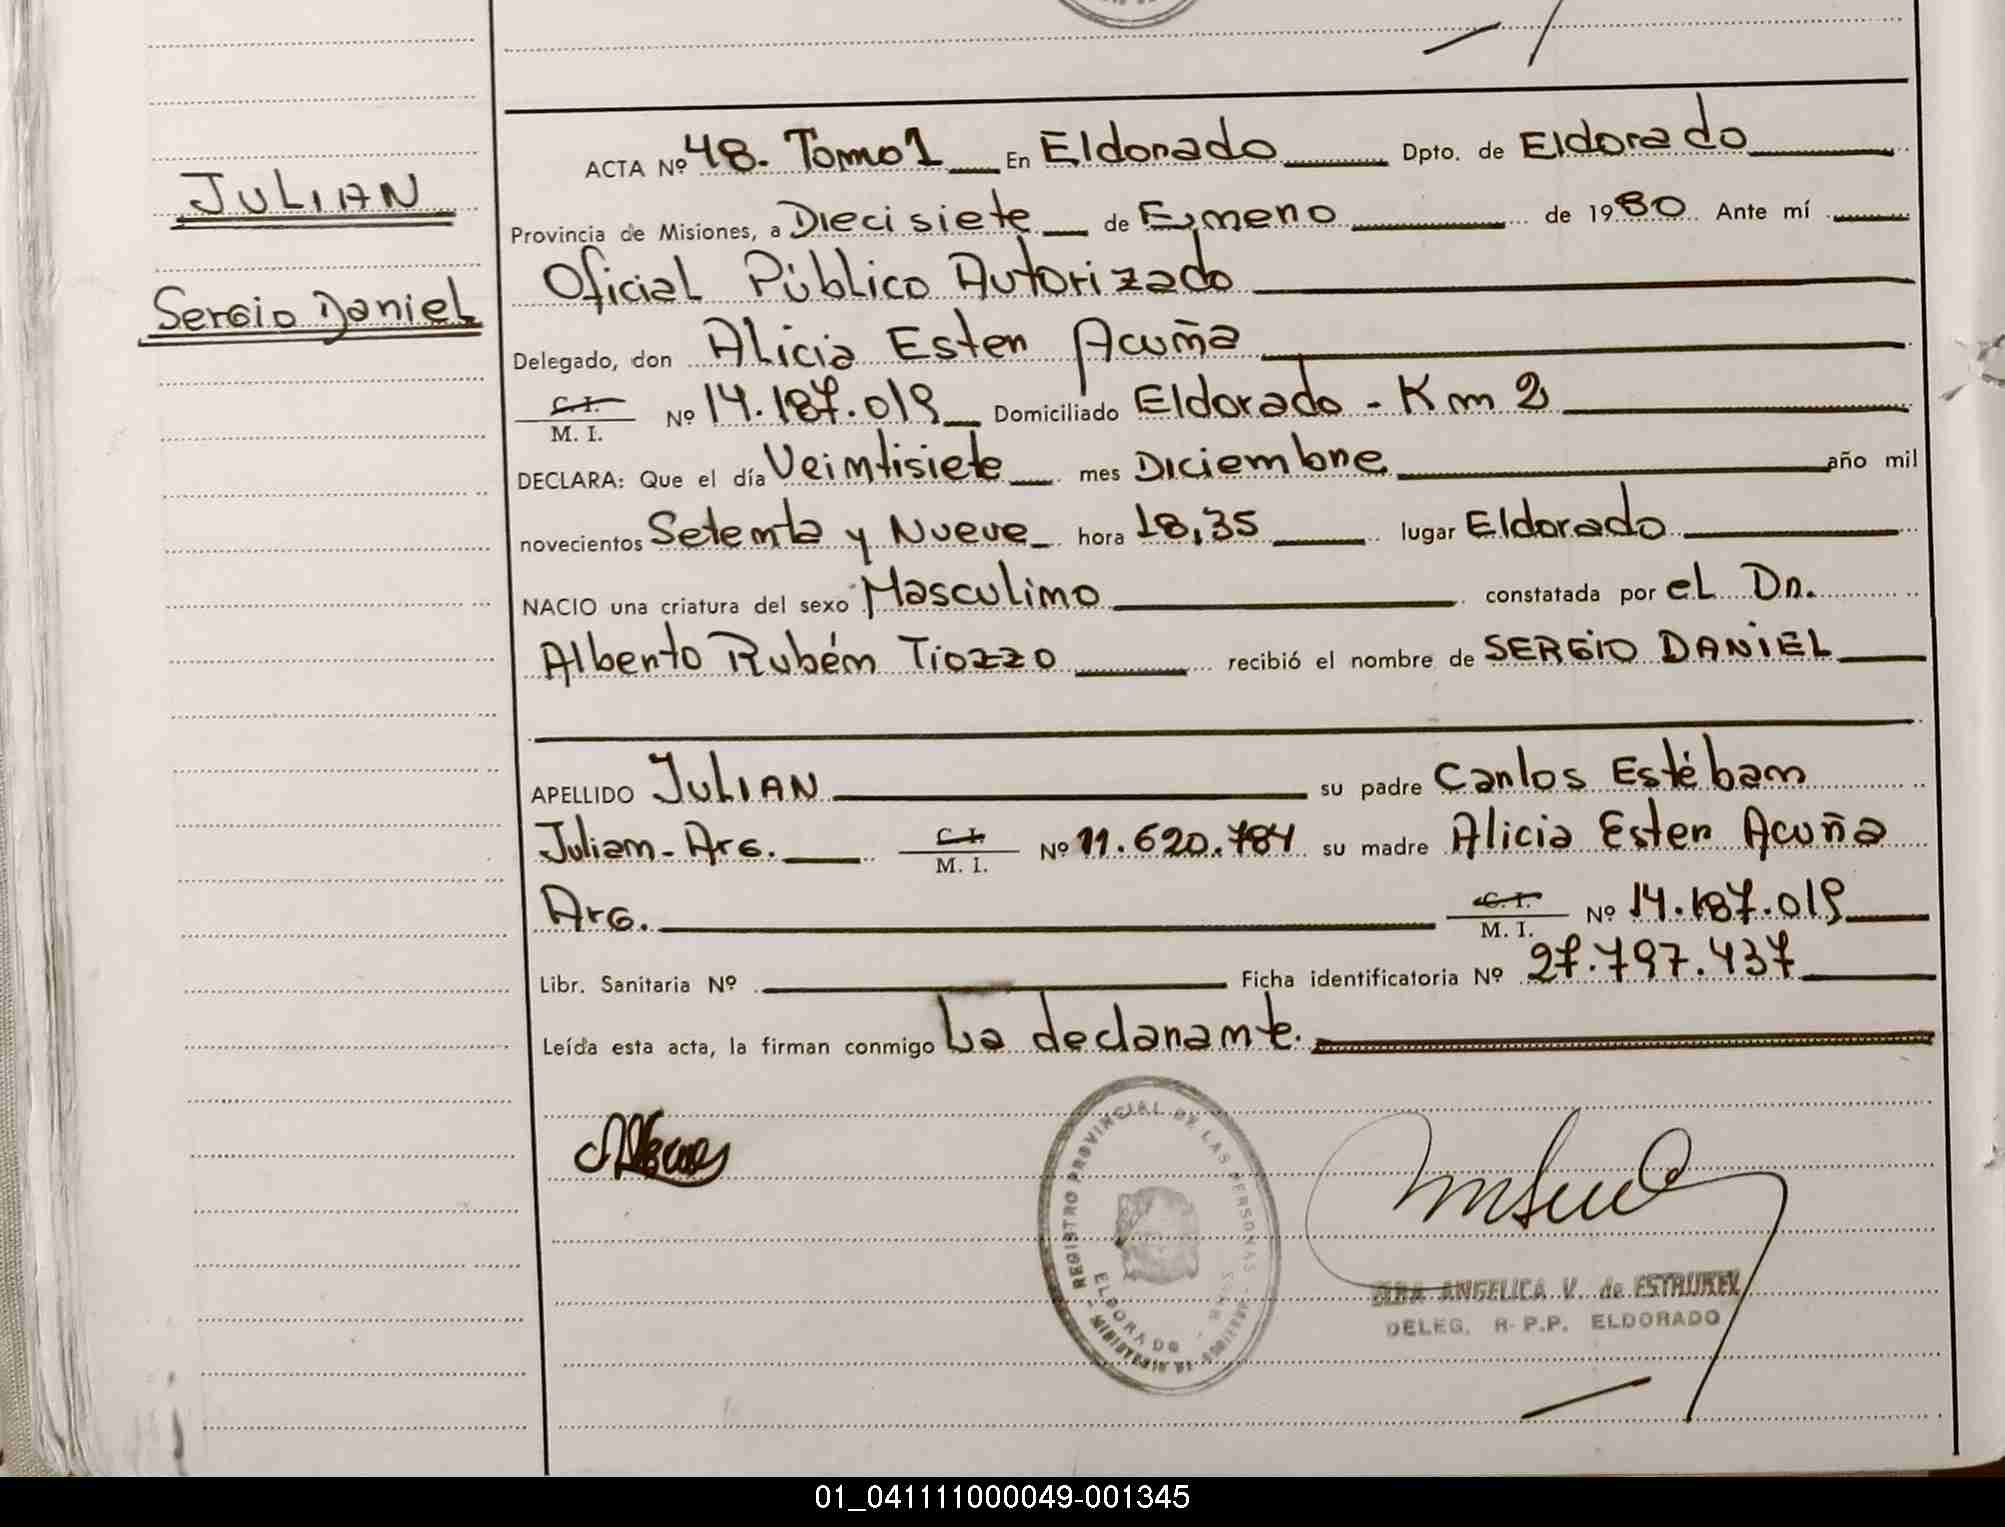 ACTA Nº 48. Tomo 1 En Eldorado Dpto. de Eldorado
JULIAN
Provincia de Misiones, a Diecisiete de Enero de 1980 Ante mí
Oficial Público Autorizado
Sergio Daniel
Delegado, don Alicia Ester Acuña
C. I.
M. I. Nº 14.187.019 Domiciliado Eldorado - Km 2
DECLARA: Que el día Veintisiete mes Diciembre año mil
novecientos Setenta y Nueve hora 18,35 lugar Eldorado
NACIO una criatura del sexo Masculino constatada por el Dr.
Alberto Rubém Tiozzo recibió el nombre de SERGIO DANIEL
APELLIDO JULIAN su padre Carlos Estéban
Julian - Arg. C. I. M. I. Nº 11.620.784 su madre Alicia Ester Acuña
Arg. C. I. M. I. Nº 14.187.019
Libr. Sanitaria Nº Ficha identificatoria Nº 27.797.437
Leída esta acta, la firman conmigo La declarante.
REGISTRO PROVINCIAL DE LAS PERSONAS
ELDORADO
ANGELICA V. de ESTRUKEL
DELEG. R.P.P. ELDORADO
01_041111000049-001345